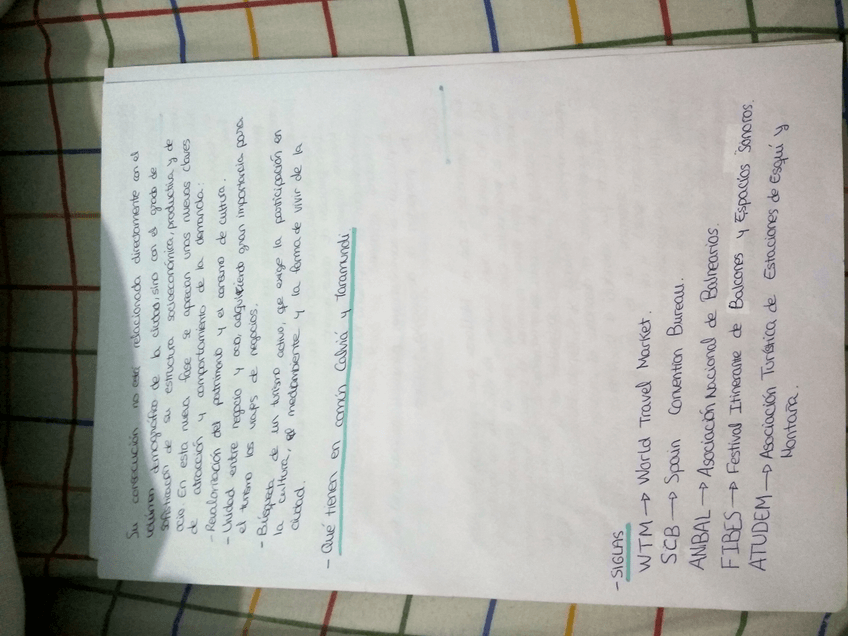 Su consecución no está relacionada directamente con el
volumen demográfico de la ciudad, sino con el grado de
sofisticación de su estructura socioeconómica, productiva y de
ocio. En esta nueva fase se aprecian unas nuevas claves
de atracción y comportamiento de la demanda:
- Revalorización del patrimonio y el consumo de cultura.
- Unidad entre negocio y ocio, adquiriendo gran importancia para
el turismo los viajes de negocios.
- Búsqueda de un turismo activo, qe exige la participación en
la cultura, el medioambiente y la forma de vivir de la
ciudad.
- Qué tienen en común Calviá y Taramundi
- SIGLAS
WTM → World Travel Market.
SCB → Spain Convention Bureau.
ANBAL → Asociación Nacional de Balnearios.
FIBES → Festival Itinerante de Balcones y Espacios Sonoros.
ATUDEM → Asociación Turística de Estaciones de Esquí y
Montaña.